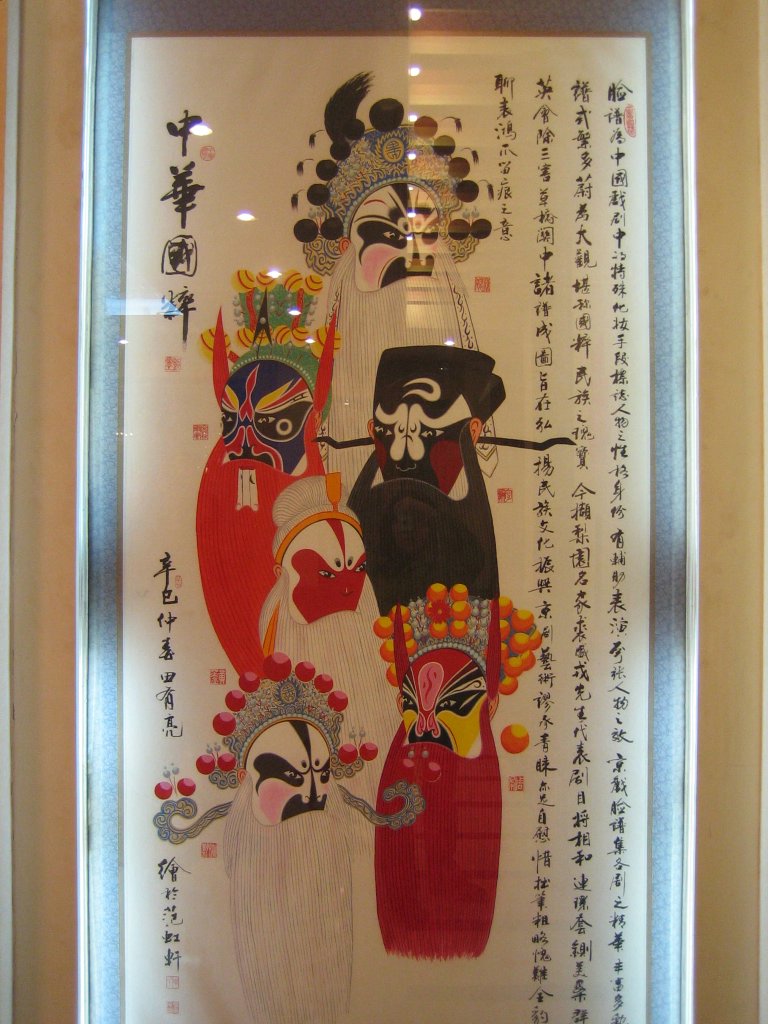 臉譜為中國戲劇中的特殊化妝手段標誌人物之性格身份有輔助表演夸張人物之效京戲臉譜集各劇之精華丰富多
譜式繁多蔚為大觀堪称國粹民族之瑰寶今擷梨園名家裘盛戎先生代表劇目將相和連環套鍘美案群
英會除三害草橋關中諸譜成圖旨在弘揚民族文化振興京劇藝術謬承青睞尔足自慰惜拙筆粗略愧難全豹
聊表鴻爪留痕之意
中華國粹
辛巳仲春田有亮
繪於范虹軒